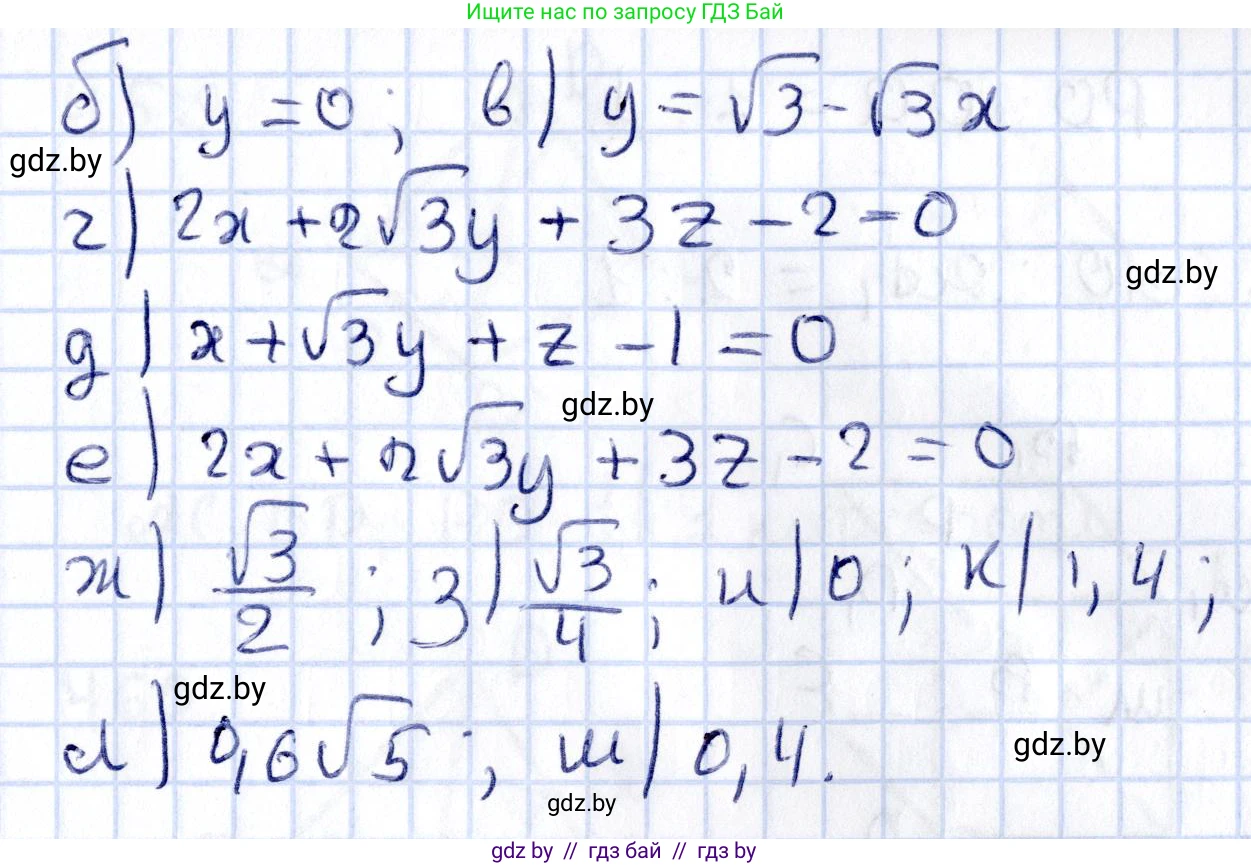 Ищите нас по запросу ГДЗ Бай
б) y = 0; в) y = √3 - √3x
gdz.by
г) 2x + 2√3y + 3z - 2 = 0
gdz.by
д) x + √3y + z - 1 = 0
gdz.by
е) 2x + 2√3y + 3z - 2 = 0
ж) √3/2; з) √3/4; и) 0; к) 1,4;
gdz.by
л) 0,6√5; м) 0,4.
gdz.by
gdz.by
gdz by // гдз бай // гдз by